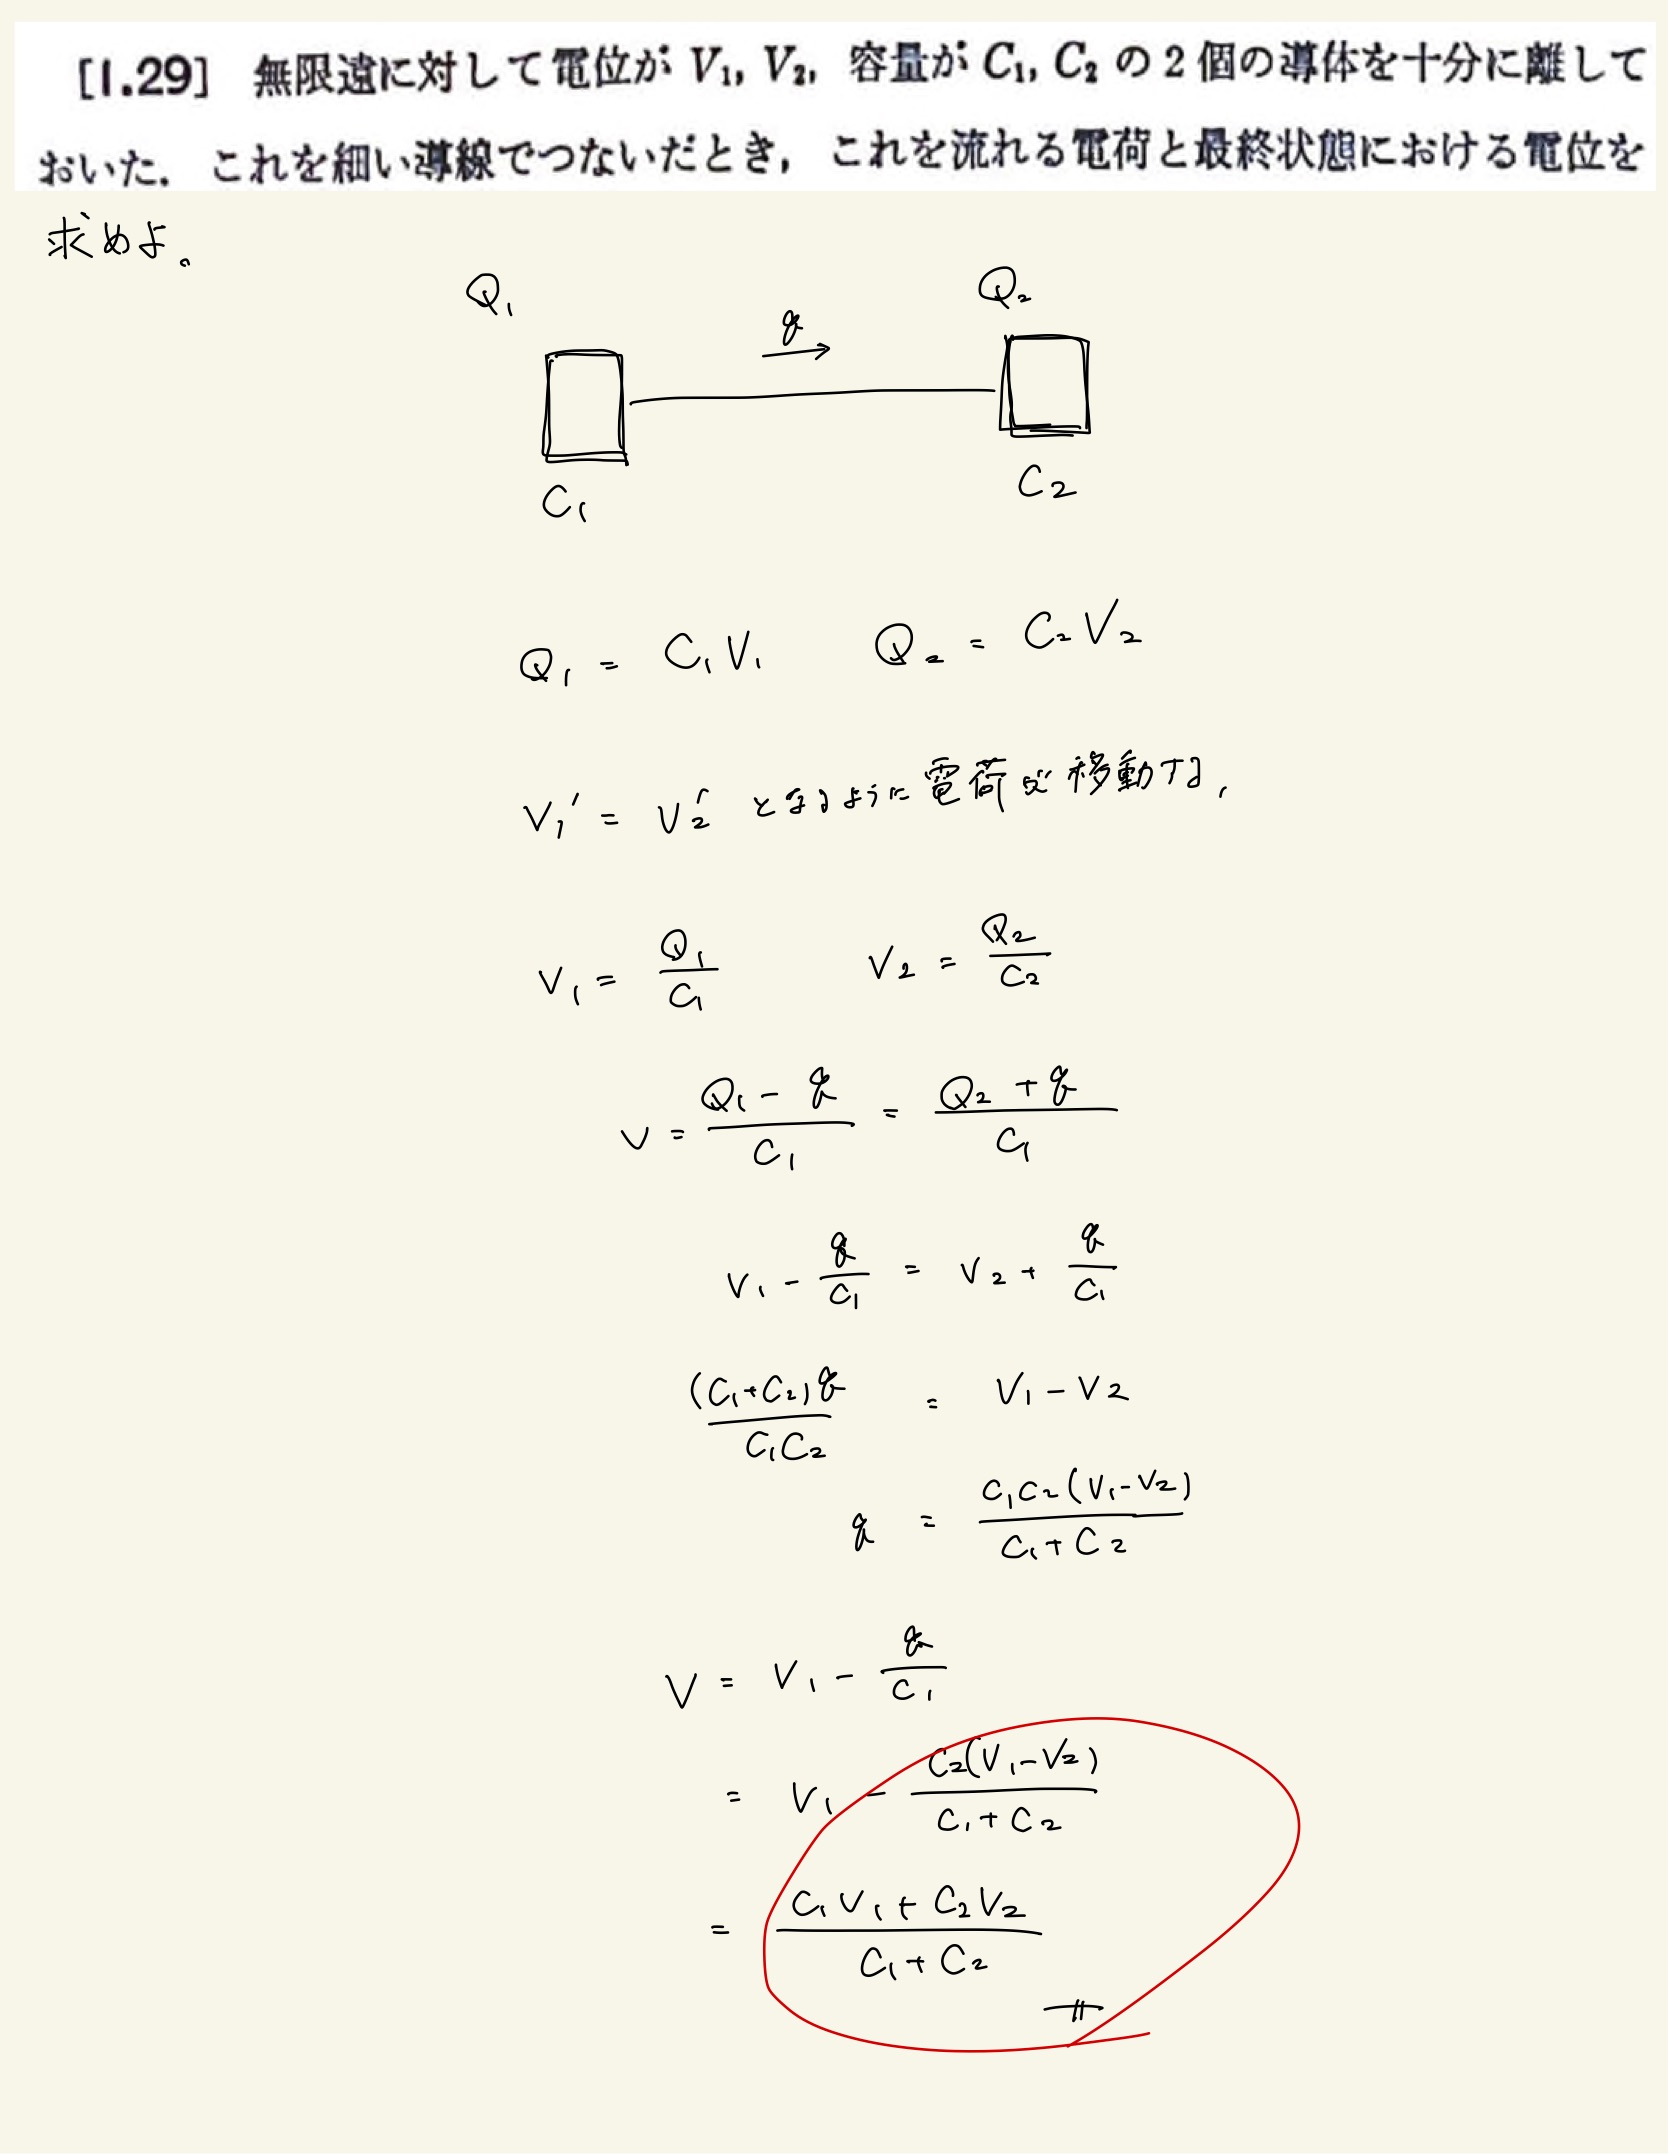 [1.29] 無限遠に対して電位が V₁, V₂, 容量が C₁, C₂ の 2 個の導体を十分に離して
おいた. これを細い導線でつないだとき, これを流れる電荷と最終状態における電位を
求めよ。
Q₁ Q₂
q →
C₁ C₂
Q₁ = C₁V₁ Q₂ = C₂V₂
V₁' = V₂' となるように電荷が移動する,
V₁ = Q₁/C₁ V₂ = Q₂/C₂
V = (Q₁ - q)/C₁ = (Q₂ + q)/C₁
V₁ - q/C₁ = V₂ + q/C₁
(C₁+C₂)q/C₁C₂ = V₁ - V₂
q = C₁C₂(V₁-V₂)/C₁+C₂
V = V₁ - q/C₁
= V₁ - C₂(V₁-V₂)/C₁+C₂
= C₁V₁+C₂V₂/C₁+C₂